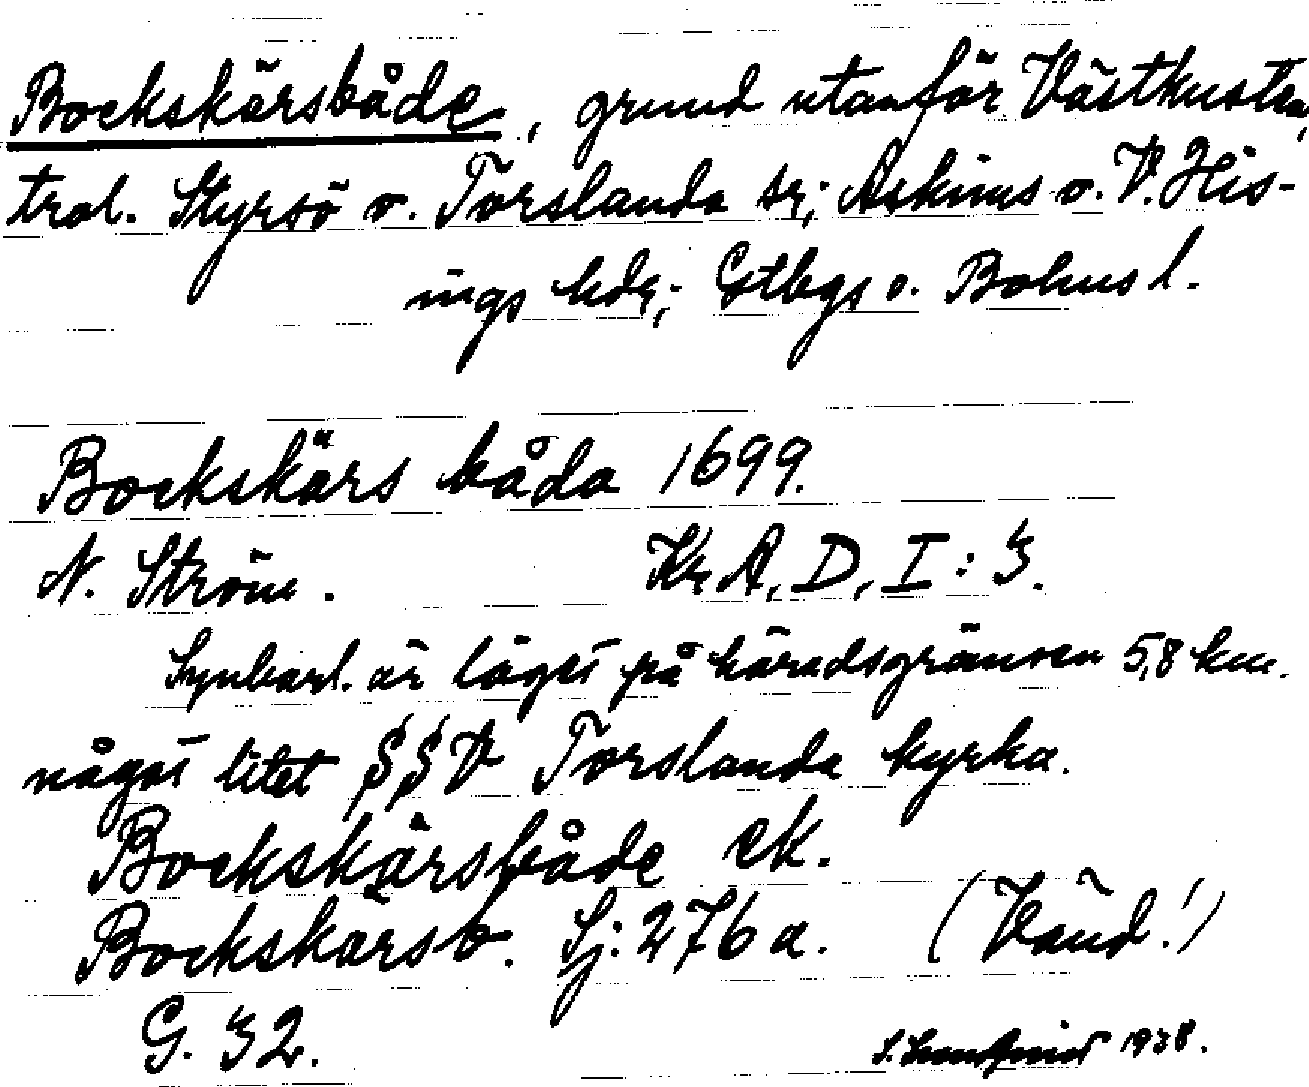 Bockskärsbåde, grund utanför Västkusten,
trol. Styrsö o. Torslanda sr; Askims o. V. His-
ings hdr; Gtbgs o. Bohus l.
Bockskärs båda 1699.
N. Ström. KrA, D, I: 3.
Synbarl. är läget på häradsgränsen 5,8 km.
något litet SSV Torslanda kyrka.
Bockskärsbåde ek.
Bockskärsb. Sj: 276 a. (Vänd!)
G. 32.
1938.